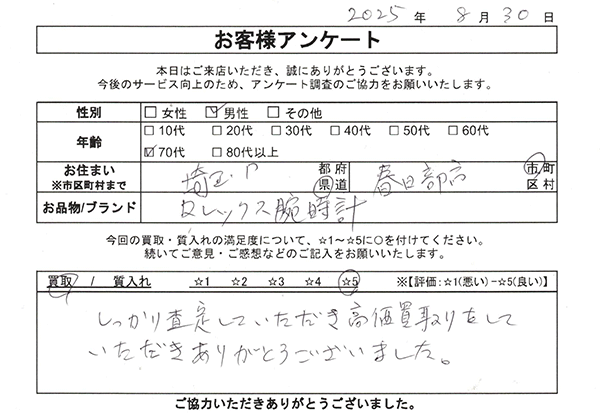 2025年 8月30日
お客様アンケート
本日はご来店いただき、誠にありがとうございます。
今後のサービス向上のため、アンケート調査のご協力をお願いいたします。
性別 □女性 ☑男性 □その他
年齢 □10代 □20代 □30代 □40代 □50代 □60代
☑70代 □80代以上
お住まい 埼玉 都府県道 春日部市 市町区村
※市区町村まで
お品物/ブランド ロレックス腕時計
今回の買取・質入れの満足度について、☆1～☆5に○を付けてください。
続いてご意見・ご感想などのご記入をお願いいたします。
買取 / 質入れ ☆1 ☆2 ☆3 ☆4 ☆5 ※【評価:☆1(悪い)-☆5(良い)】
しっかり査定していただき高価買取りをして
いただきありがとうございました。
ご協力いただきありがとうございました。